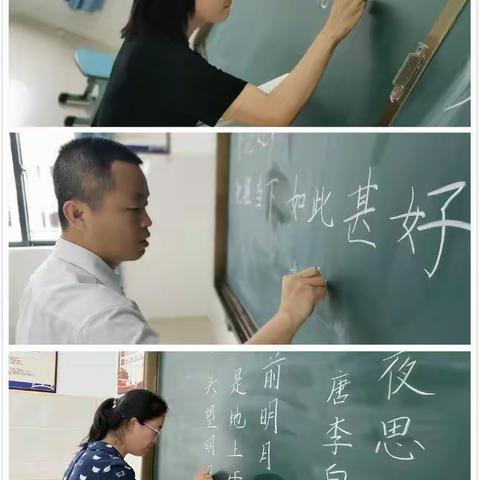 下如此甚好
夜思
唐李白
前明月
是地上
头望明